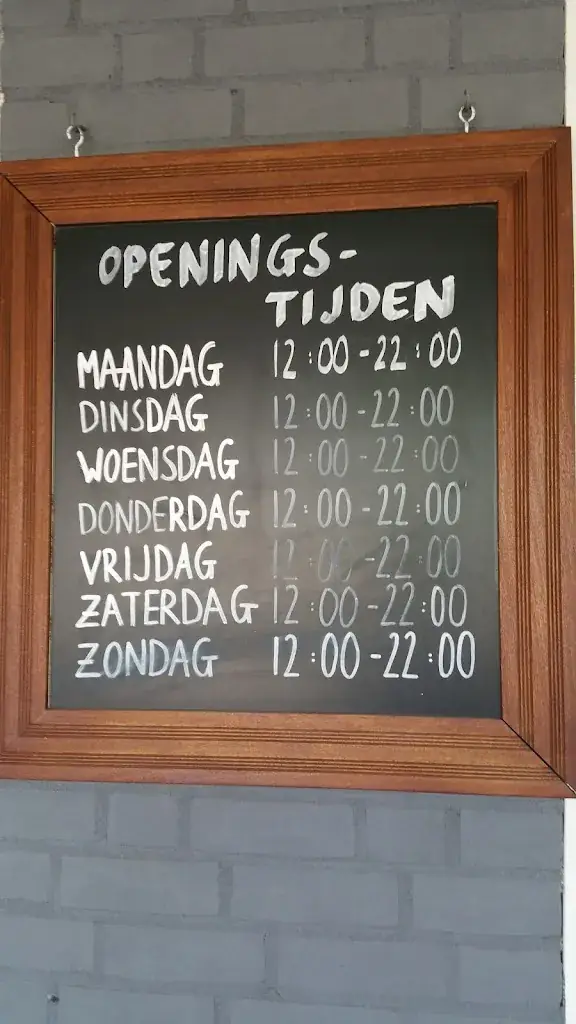 OPENINGS-
TIJDEN
MAANDAG 12:00-22:00
DINSDAG 12:00-22:00
WOENSDAG 12:00-22:00
DONDERDAG 12:00-22:00
VRIJDAG 12:00-22:00
ZATERDAG 12:00-22:00
ZONDAG 12:00-22:00